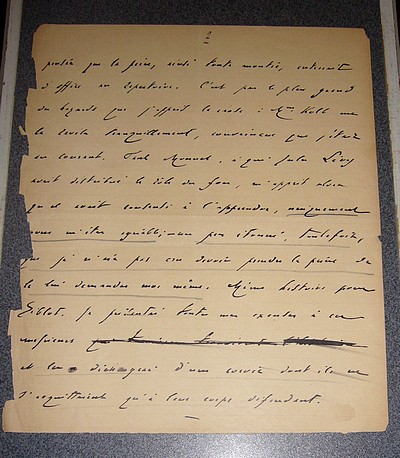 2
que la pièce, ainsi toute montée, entrerait
d'office au répertoire. C'est par le plus grand
des hasards que j'appris le reste : Mme Kolb me
le révéla tranquillement, convaincue que j'étais
au courant. Paul Monuel, à qui Jules Lévy
avait distribué le rôle du fou, m'apprit alors
qu'il avait consenti à l'apprendre, uniquement
pour m'être agréable, un peu étonné, toutefois,
que je n'aie pas cru devoir prendre la peine de
le lui demander moi même. Même histoire pour
Siblot. Je présentai toutes mes excuses à ces
messieurs
et les déchargeai d'une corvée dont ils ne
s'acquittaient qu'à leur corps défendant.